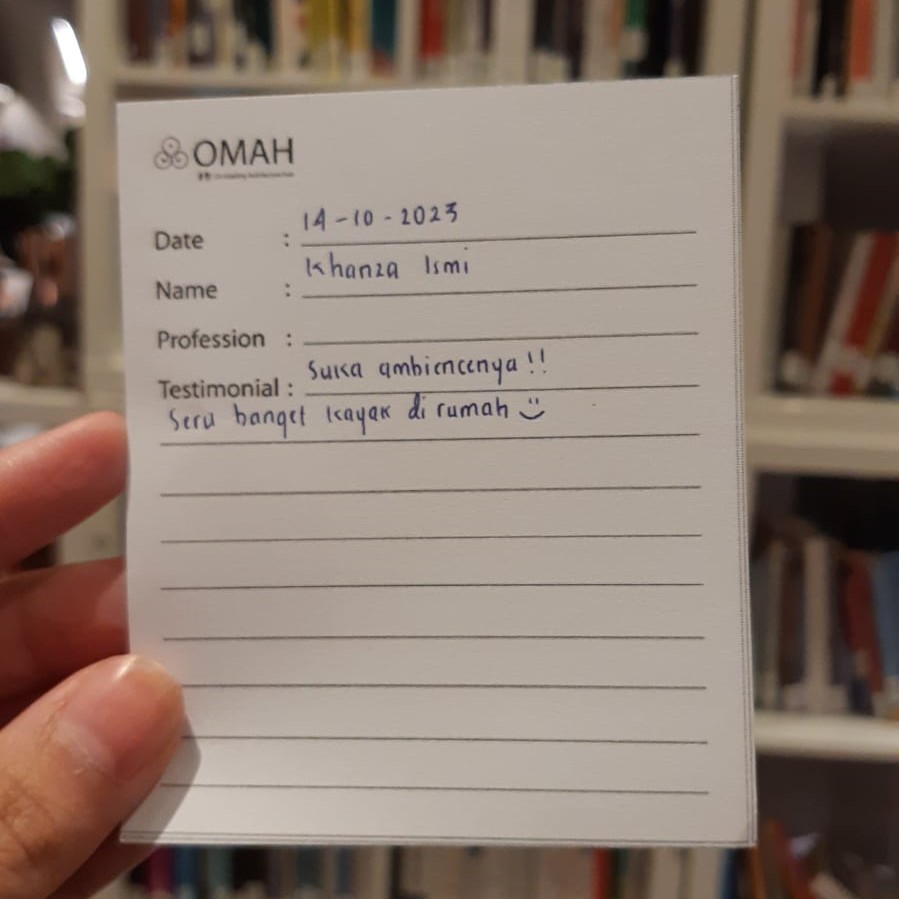 OMAH
Date : 14-10-2023
Name : Khanza Ismi
Profession :
Testimonial : Suka ambiencenya!!
Seru banget kayak di rumah :)